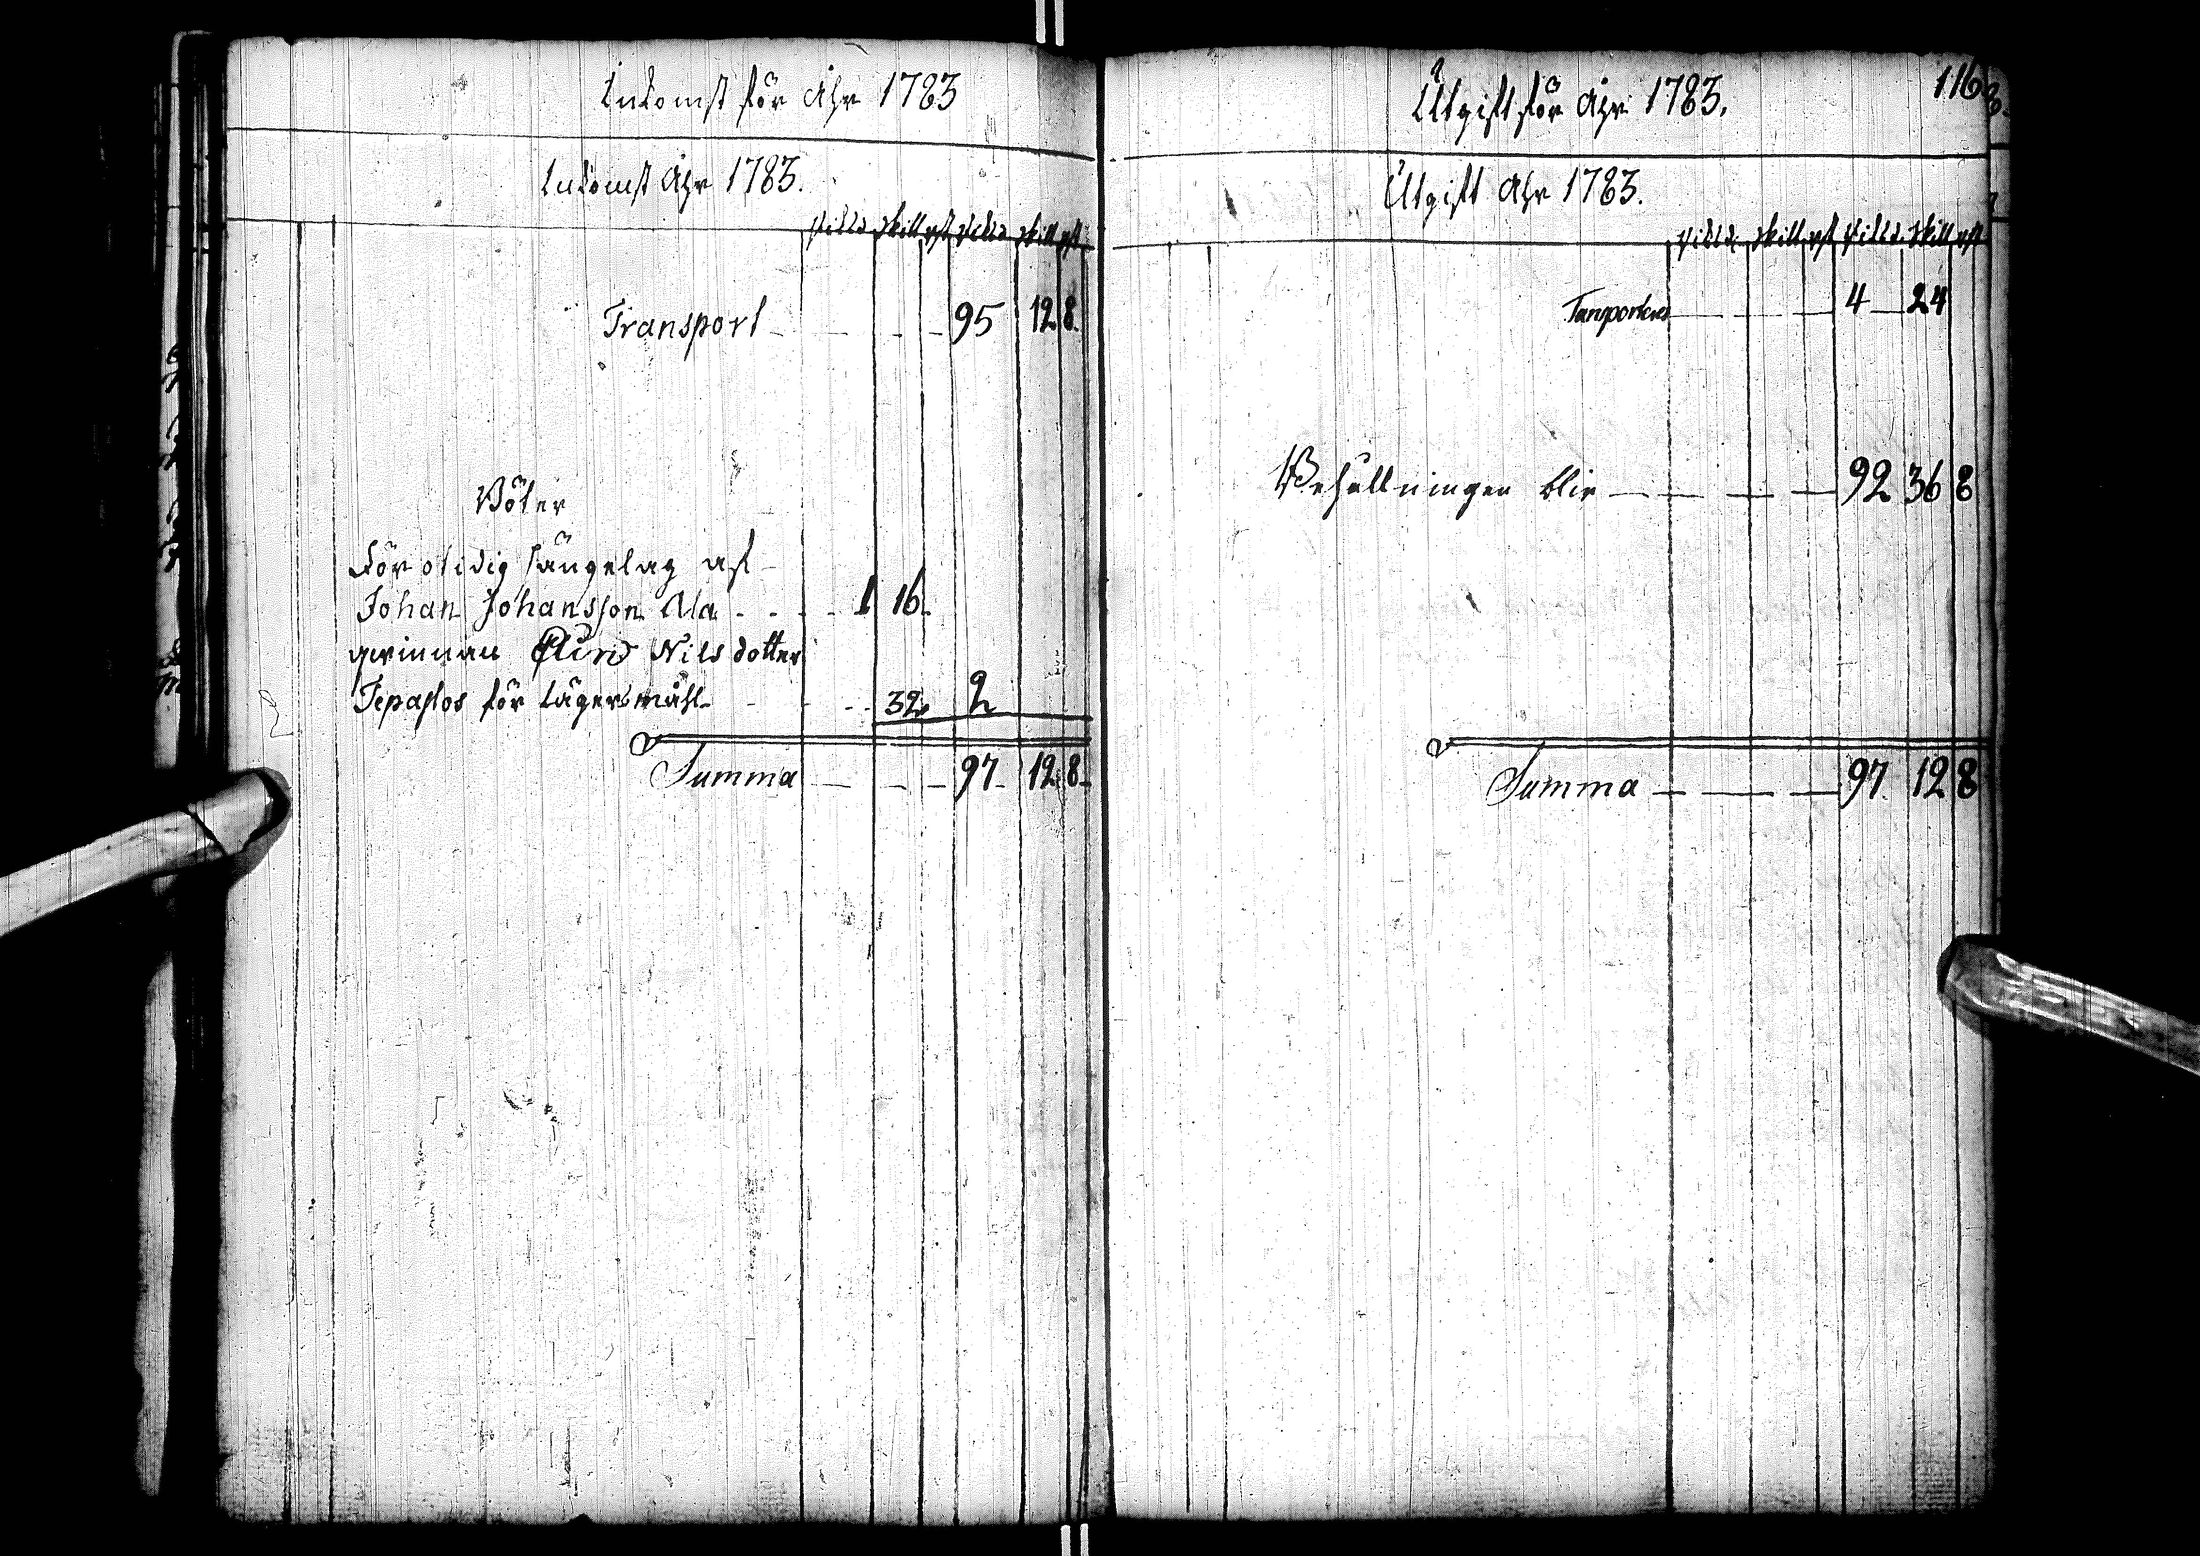 Inkomst för Åhr 1783
Inkomst Åhr 1783.
Riksd. Skill. rst. Riksd. Skill. rst.
Transport 95 12 8.
Böter
För otidig sängelag af
Johan Johansson Ala 1 16.
qwinnan Nilsdotter
Tepastos för lägersmåhl 32. 2
Summa 97. 12. 8.
Utgift för Åhr 1783. 116
Utgift Åhr 1783.
Riksd. Skill. rst. Riksd. Skill. rst.
Transporteras 4 24
Behållningen blir 92 36 8
Summa 97 12 8